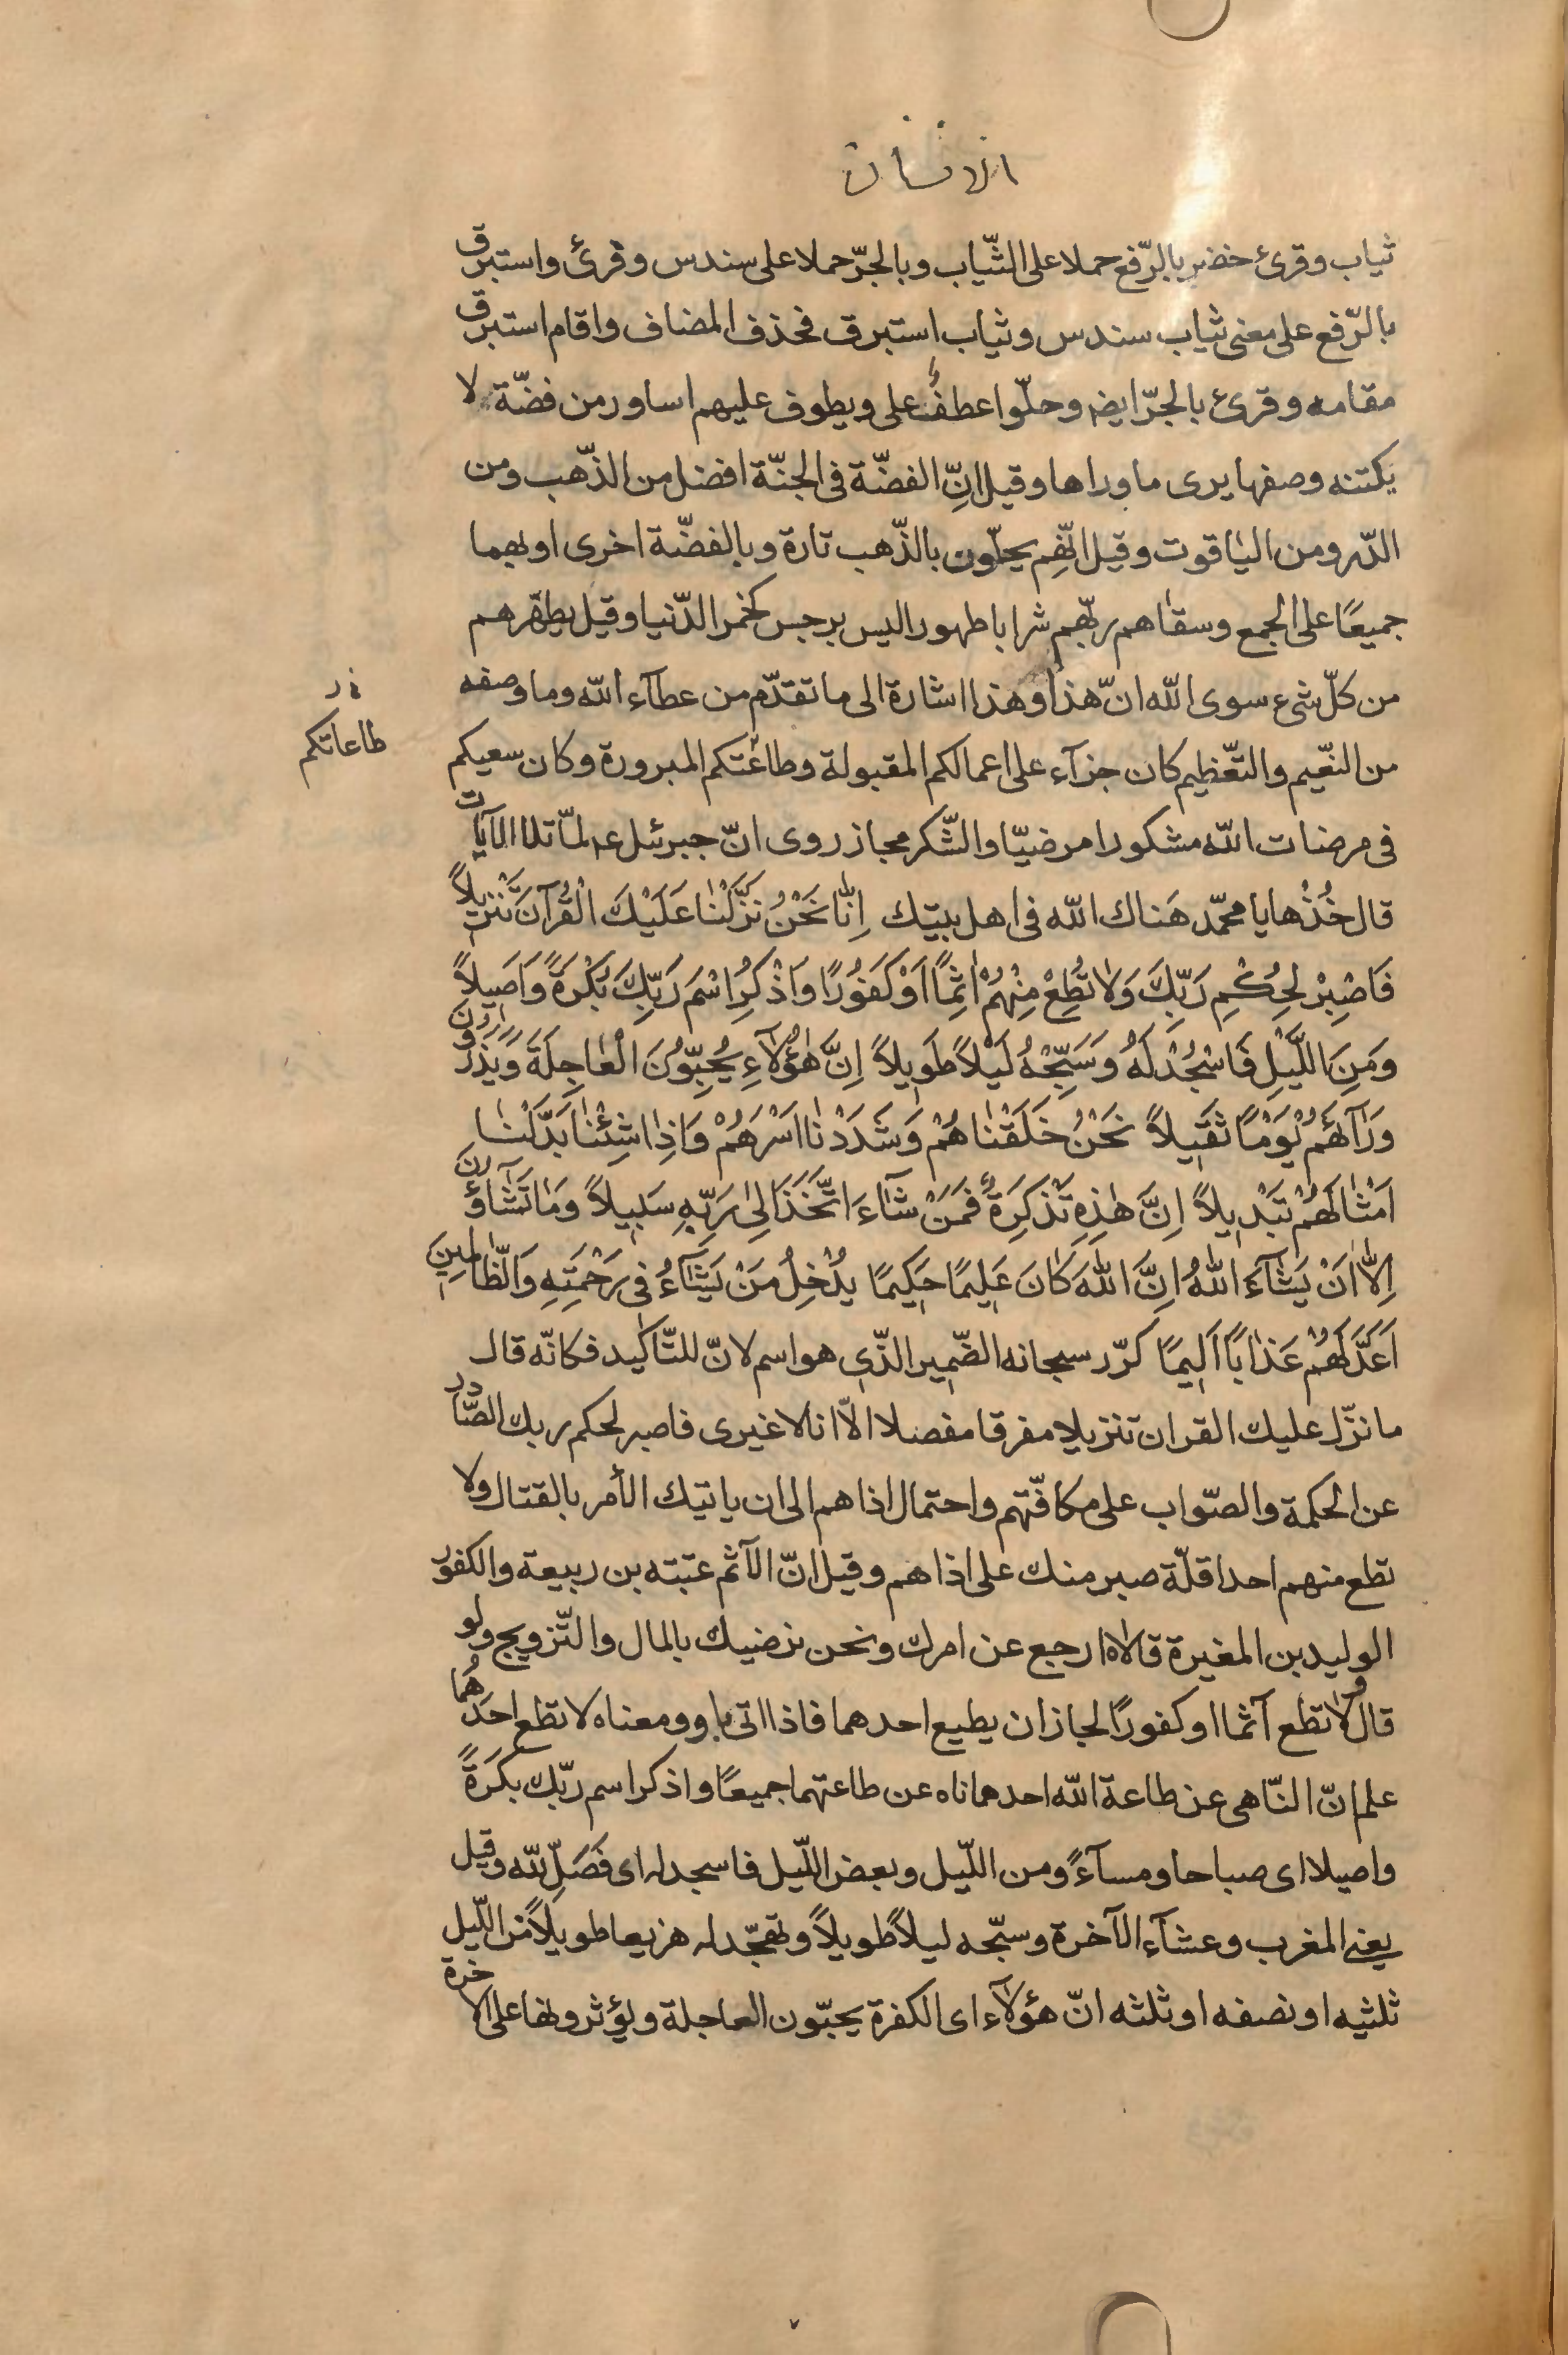 الانسان
ثياب وقرئ خضر بالرّفع حملا على الثّياب وبالجرّ حملا على سندس وقرئ واستبرق
بالرّفع على معنى ثياب سندس وثياب استبرق فحذف المضاف واقام استبرق
مقامه وقرئ بالجرّ ايضه وحلّوا عطفٌ على ويطوف عليهم اساور من فضّة لا
يكتنه وصفها يرى ماوراها وقيل انّ الفضّة فى الجنّة افضل من الذّهب ومن
الدّر ومن الياقوت وقيل انّهم يحلّون بالذّهب تارة وبالفضّة اخرى او بهما
جميعًا على الجمع وسقاهم ربّهم شرابا طهورا ليس برجس كخمر الدّنيا وقيل يطهّرهم
من كلّ شىء سوى الله انّ هذا وهذا اشارة الى ما تقدّم من عطآء الله وما وصفه
من النّعيم والتّعظيم كان جزآء على اعمالكم المقبولة وطاعتكم المبرورة وكان سعيكم
طاعاتكم
فى مرضات الله مشكورا مرضيّا والشّكر مجاز روى انّ جبرئيل عم لمّا تلا الآيات
قال خُذْها يا محمّد هَناك الله فى اهل بيتك اِنّٰا نَحْنُ نَزَّلْنٰا عَلَيْكَ الْقُرْآنَ تَنْزيلاً
فَاصْبِرْ لِحُكْمِ رَبِّكَ وَلٰا تُطِعْ مِنْهُمْ اٰثِمًا اَوْ كَفُورًا وَاذْكُرِ اسْمَ رَبِّكَ بُكْرَةً وَاَصيلاً
وَمِنَ اللَّيْلِ فَاسْجُدْ لَهُ وَسَبِّحْهُ لَيْلاً طَويلاً اِنَّ هٰؤُلآءِ يُحِبُّونَ الْعٰاجِلَةَ وَيَذَرُونَ
وَرٰآءَهُمْ يَوْمًا ثَقيلاً نَحْنُ خَلَقْنٰاهُمْ وَشَدَدْنٰا اَسْرَهُمْ وَاِذٰا شِئْنٰا بَدَّلْنٰا
اَمْثٰالَهُمْ تَبْديلاً اِنَّ هٰذِهِ تَذْكِرَةٌ فَمَنْ شٰاءَ اتَّخَذَ اِلىٰ رَبِّهِ سَبيلاً وَمٰا تَشٰاؤُنَ
اِلّٰا اَنْ يَشٰآءَ اللهُ اِنَّ اللهَ كٰانَ عَليمًا حَكيمًا يُدْخِلُ مَنْ يَشٰآءُ فى رَحْمَتِهِ وَالظّٰالِمينَ
اَعَدَّ لَهُمْ عَذٰابًا اَليمًا كرّر سبحانه الضّمير الذّى هو اسم لانّ للتّاكيد فكانّه قال
ما نزّل عليك القران تنزيلا مفرقا مفصلا الّا انا لا غيرى فاصبر لحكم ربك الصّادر
عن الحكمة والصّواب على مكافّتهم واحتمال اذاهم الى ان ياتيك الأمر بالقتال ولا
تطع منهم احدا قلّة صبر منك على اذاهم وقيل انّ الآثم عتبته بن ربيعة والكفور
الوليد بن المغيرة قالاه ارجع عن امرك ونحن نرضيك بالمال والتّزويج ولو
قال ولا تطع آثما او كفورًا لجاز ان يطيع احدهما فاذا اتى باو ومعناه لا تطع احدَهُما
علم انّ النّاهى عن طاعة الله احدهما ناه عن طاعتهما جميعًا واذكر اسم ربّك بكرَةً
واصيلا اى صباحا ومسآءً ومن اللّيل وبعض اللّيل فاسجد له اى فَصَلِّ لله وقيل
يعنى المغرب وعشآء الآخرة وسبّحه ليلاً طويلاً وتهجّد له هزيعا طويلاً من اللّيل
ثلثيه او نصفه او ثلثه انّ هؤلآء اى الكفرة يحبّون العاجلة ويؤثرونها على الاخرة